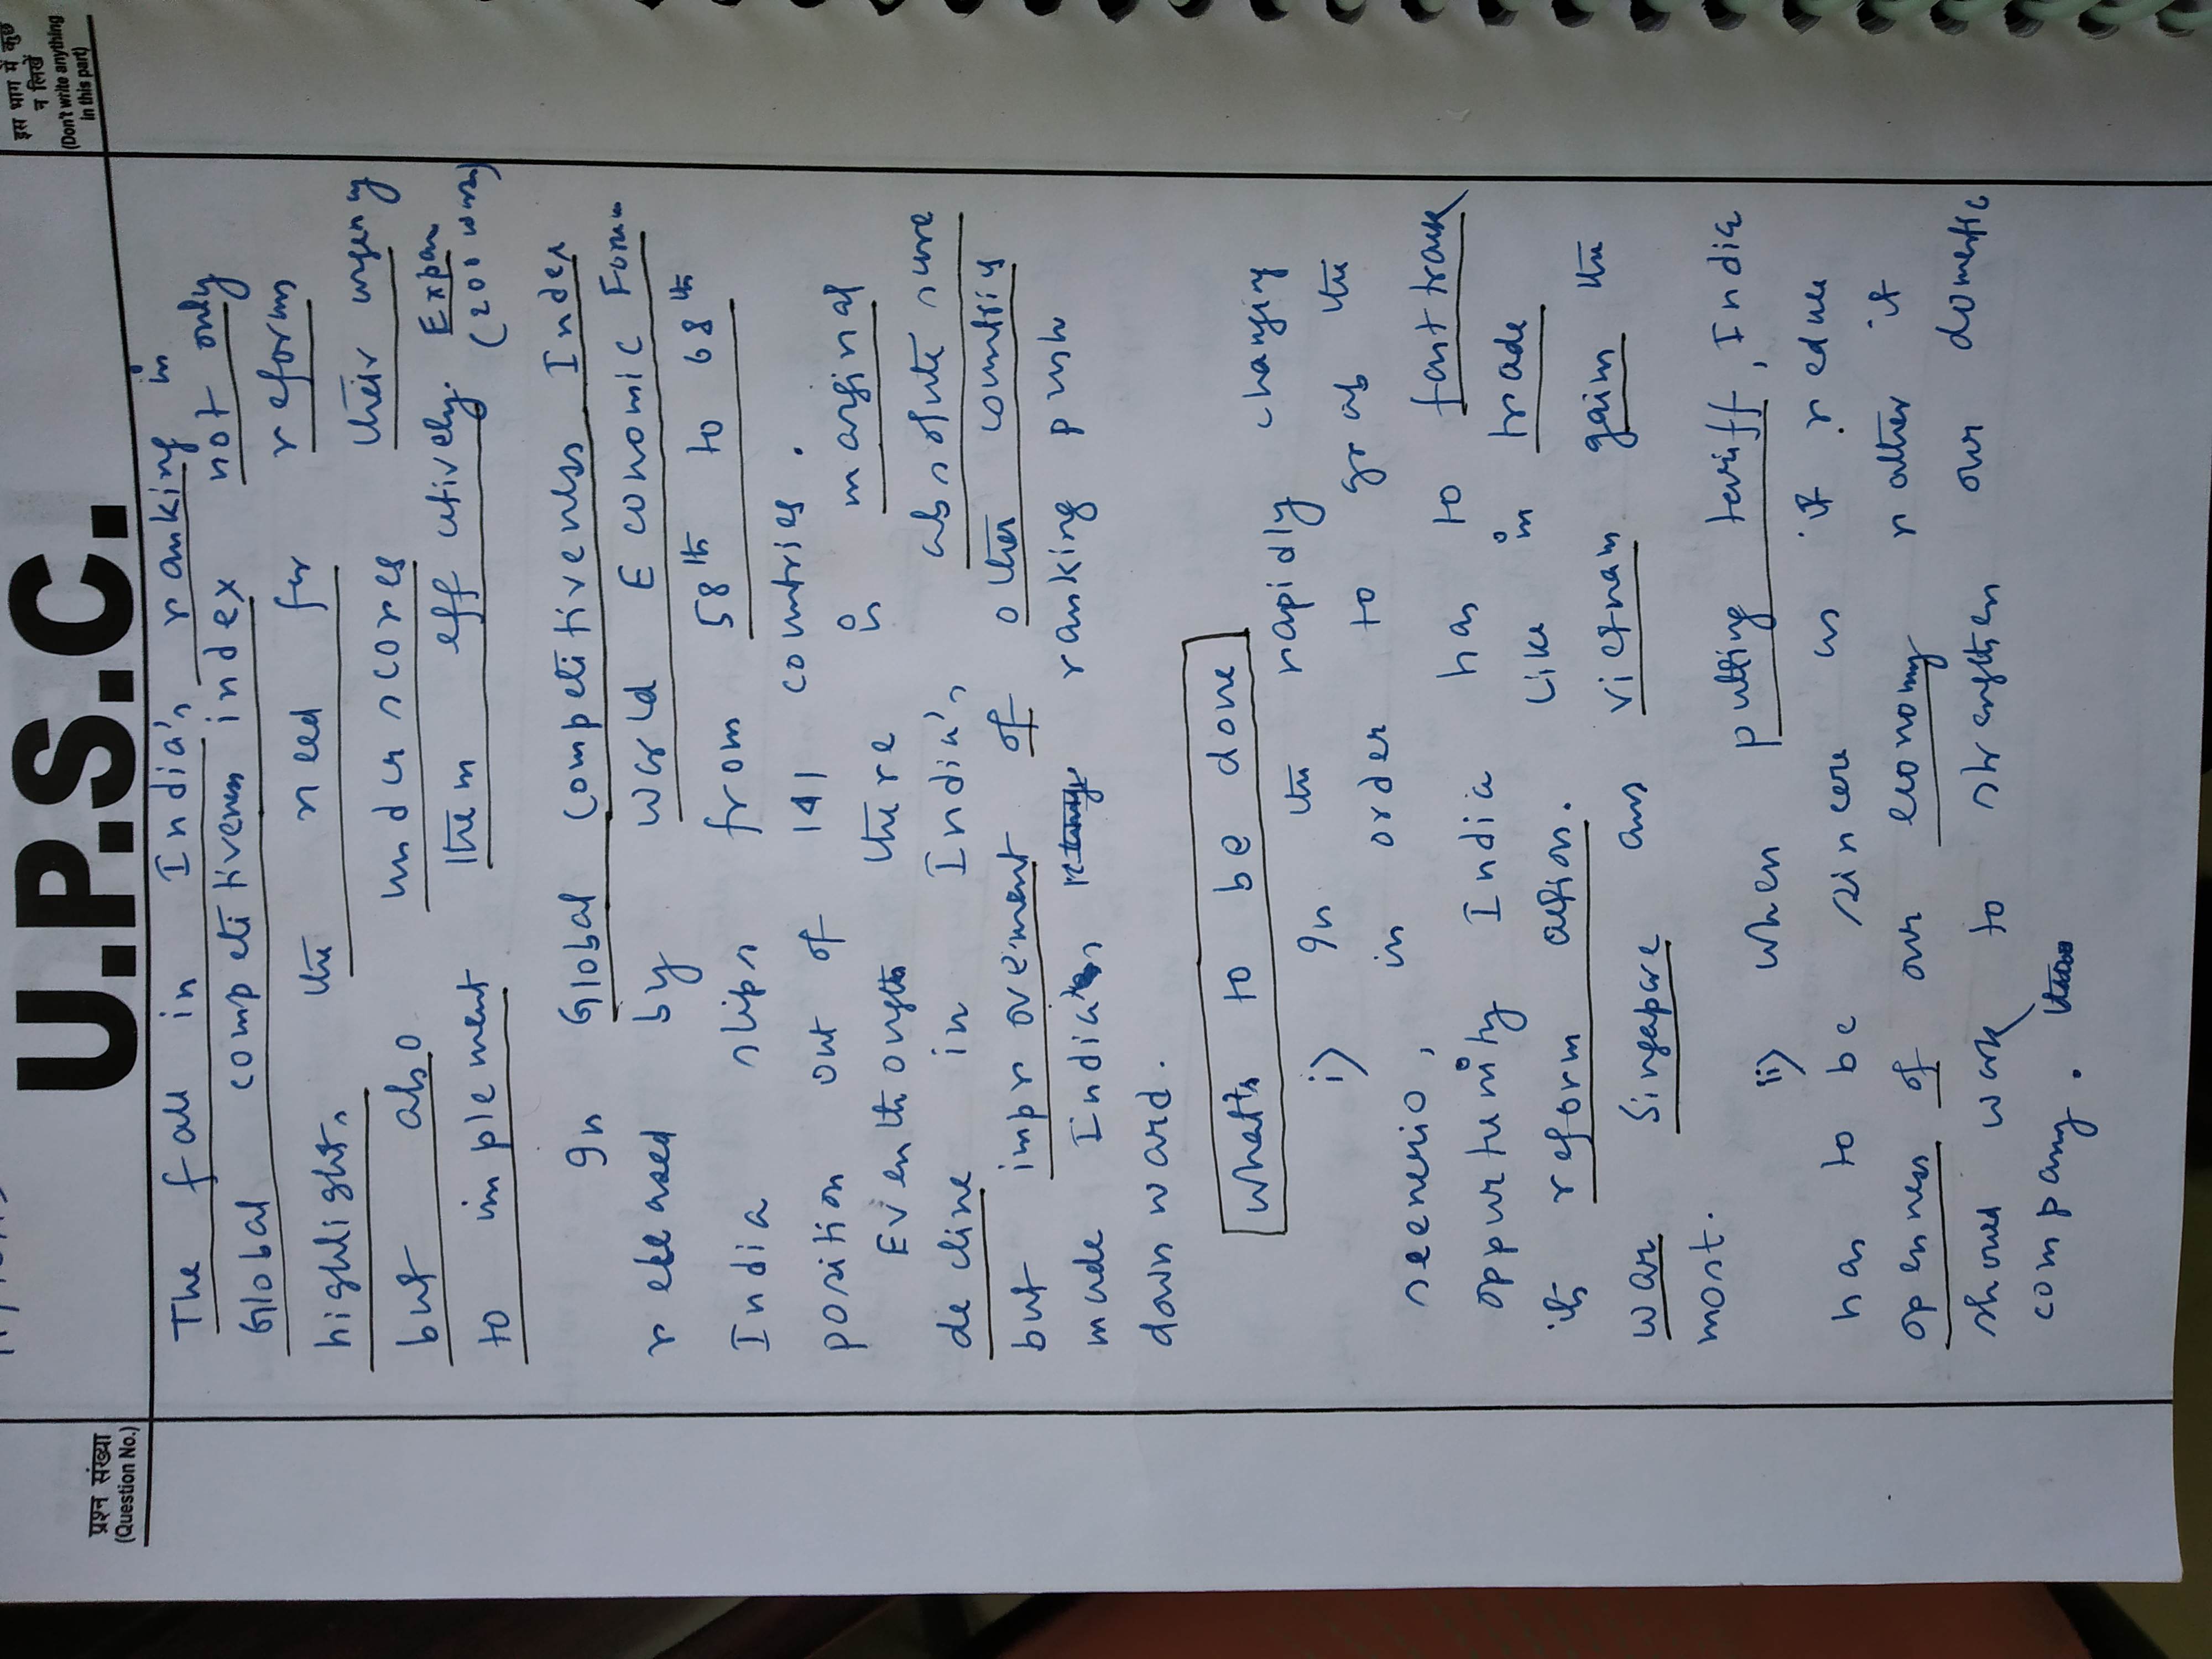 U.P.S.C.
प्रश्न संख्या
(Question No.)
इस भाग में कुछ
न लिखें
(Don't write anything
in this part)
The fall in India's ranking in
Global competitiveness index not only
highlights the need for reforms
but also underscores their urgency
to implement them effectively. Expan
(200 words)
In Global Competitiveness Index
released by World Economic Forum
India slips from 58th to 68th
position out of 141 countries.
Eventhough there is marginal
decline in India's absolute score
but improvement of other countries
made India's ranking push
downward.
What to be done
i) In the rapidly changing
scenerio, in order to grab the
oppurtunity India has to fast track
its reform action. Like in trade
war Singapore and Vietnam gain the
most.
ii) When putting tariff, India
has to be sincere as it reduce
openness of our economy rather it
should work to strengthen our domestic
company.